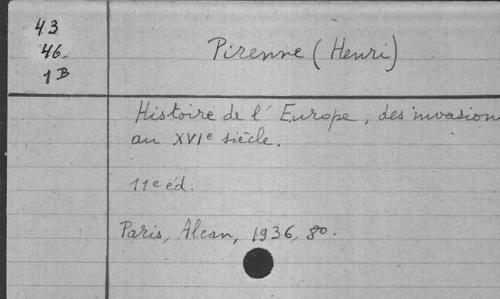 43
46.
1B
Pirenne (Henri)
Histoire de l'Europe, des invasions
au XVIe siècle.
11e éd.
Paris, Alcan, 1936, 8o.